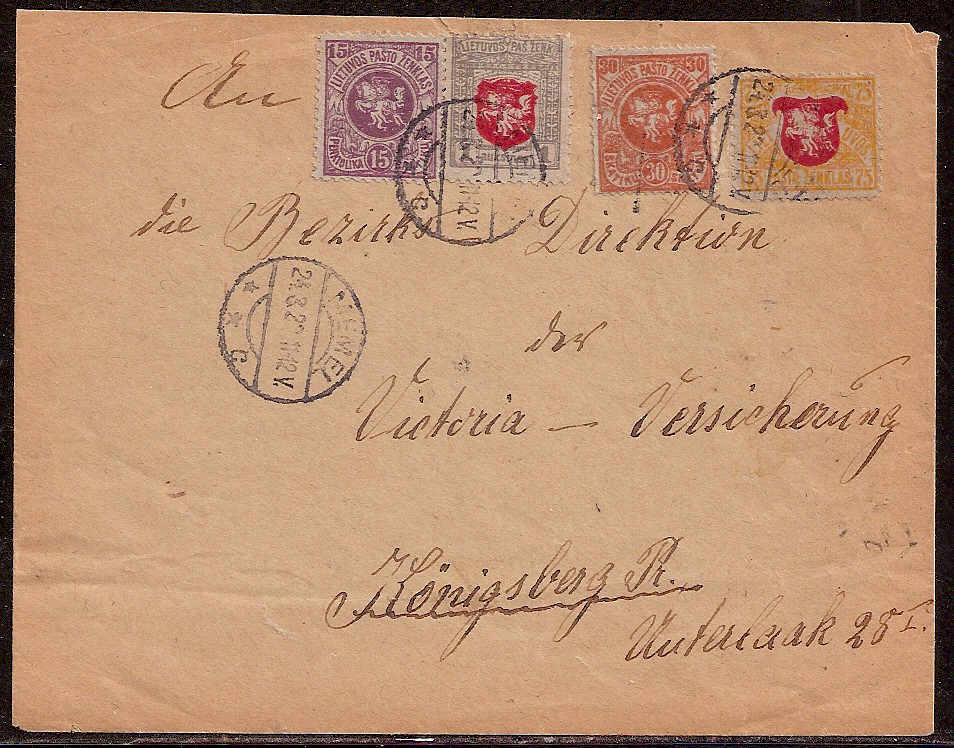 15 15
LIETUVOS PASTO ŽENKLAS
15
LIETUVOS PAŠ ŽENK
1
30 30
LIETUVOS PASTO ŽENKLAS
30
75
ŽENKLAS 75
An
die Bezirks Direktion
der
Victoria – Versicherung
Königsberg Pr.
Unterlaak 28 I.
MEMEL
24.3.2 11-12V.
C